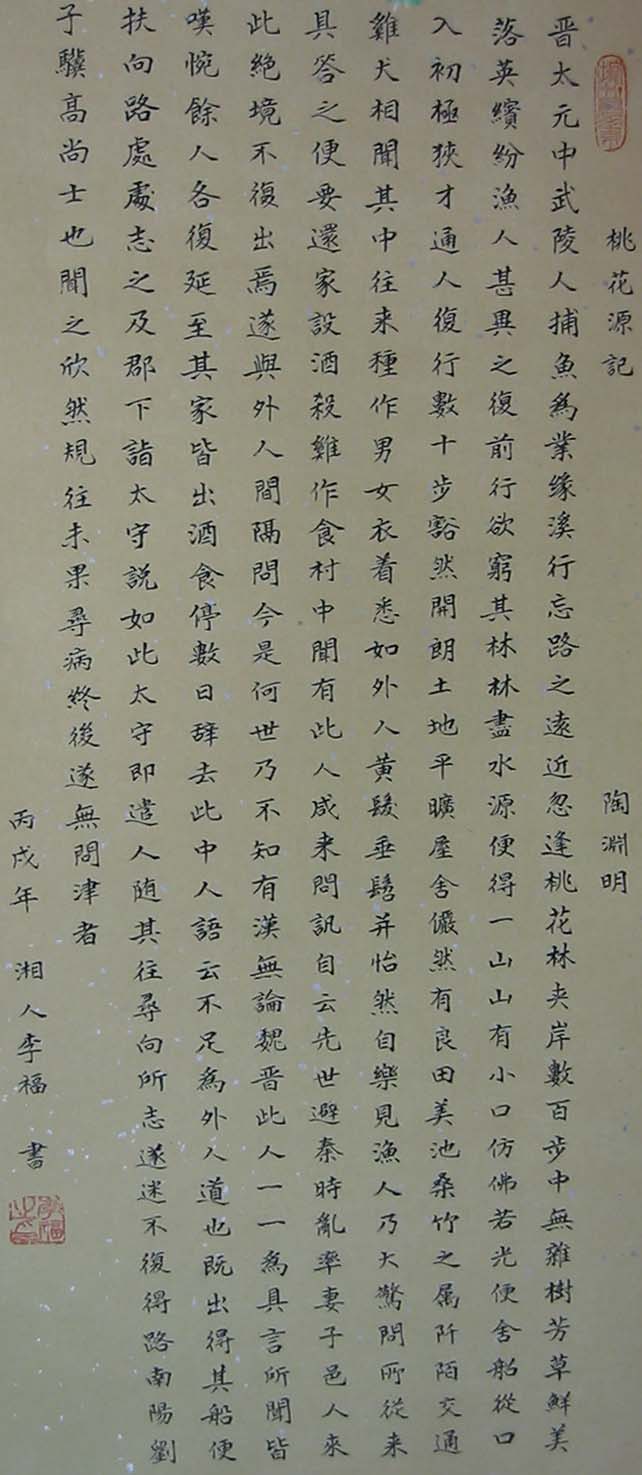 桃花源記 陶淵明
晋太元中武陵人捕魚為業緣溪行忘路之遠近忽逢桃花林夾岸數百步中無雜樹芳草鮮美
落英繽紛漁人甚異之復前行欲窮其林林盡水源便得一山山有小口仿佛若光便舍船從口
入初極狹才通人復行數十步豁然開朗土地平曠屋舍儼然有良田美池桑竹之属阡陌交通
雞犬相聞其中往来種作男女衣着悉如外人黃髮垂髫并怡然自樂見漁人乃大驚問所從来
具答之便要還家設酒殺雞作食村中聞有此人咸来問訊自云先世避秦時亂率妻子邑人來
此絕境不復出焉遂與外人間隔問今是何世乃不知有漢無論魏晋此人一一為具言所聞皆
嘆惋餘人各復延至其家皆出酒食停數日辞去此中人語云不足為外人道也既出得其船便
扶向路處處志之及郡下詣太守説如此太守即遣人随其往尋向所志遂迷不復得路南陽劉
子驥高尚士也聞之欣然規往未果尋病終後遂無問津者
丙戌年 湘人李福 書